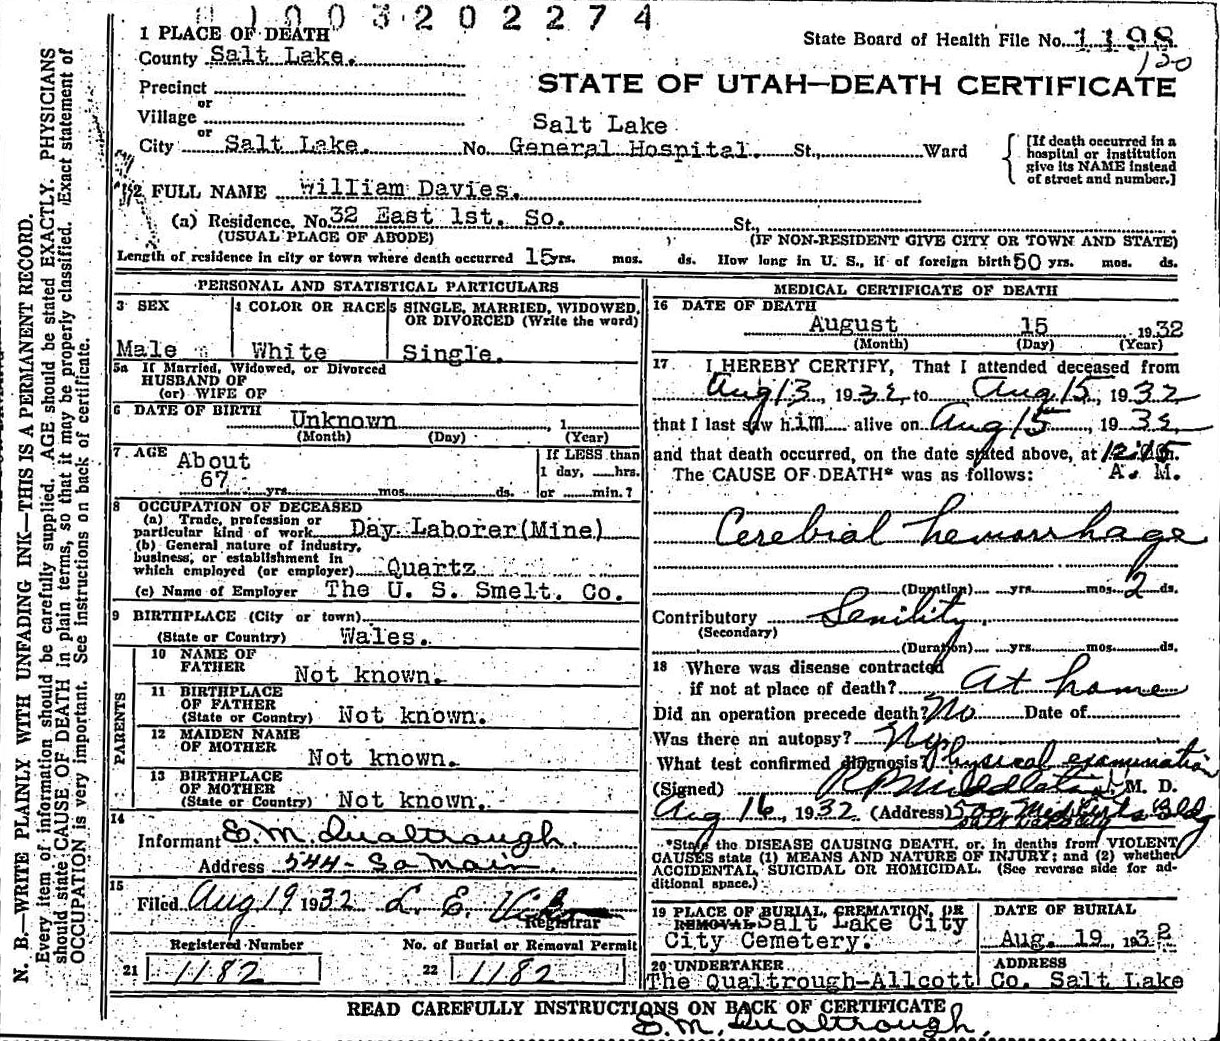 0 1 0 0 3 2 0 2 2 7 4
1 PLACE OF DEATH
State Board of Health File No. 1198
130
County Salt Lake.
STATE OF UTAH—DEATH CERTIFICATE
Precinct
or
Village
or
Salt Lake
City Salt Lake. No. General Hospital. St., Ward
[If death occurred in a
hospital or institution
give its NAME instead
of street and number.]
2 FULL NAME William Davies.
(a) Residence. No. 32 East 1st. So. St.,
(USUAL PLACE OF ABODE) (IF NON-RESIDENT GIVE CITY OR TOWN AND STATE)
Length of residence in city or town where death occurred 15 yrs. mos. ds. How long in U. S., if of foreign birth 50 yrs. mos. ds.
PERSONAL AND STATISTICAL PARTICULARS
3 SEX
Male
4 COLOR OR RACE
White
5 SINGLE, MARRIED, WIDOWED,
OR DIVORCED (Write the word)
Single.
5a If Married, Widowed, or Divorced
HUSBAND OF
(or) WIFE OF
6 DATE OF BIRTH
Unknown , 1
(Month) (Day) (Year)
7 AGE About
67 yrs. mos. ds.
If LESS than
1 day, hrs.
or min.?
8 OCCUPATION OF DECEASED
(a) Trade, profession or
particular kind of work Day Laborer(Mine)
(b) General nature of industry,
business, or establishment in
which employed (or employer) Quartz
(c) Name of Employer The U. S. Smelt. Co.
9 BIRTHPLACE (City or town)
(State or Country) Wales.
PARENTS
10 NAME OF
FATHER Not known.
11 BIRTHPLACE
OF FATHER
(State or Country) Not known.
12 MAIDEN NAME
OF MOTHER
Not known.
13 BIRTHPLACE
OF MOTHER
(State or Country) Not known.
14
Informant E. M. Qualtrough
Address 544- So Main
15
Filed Aug 19 1932 L. E.
Registrar
Registered Number No. of Burial or Removal Permit
21 1182 22 1182
MEDICAL CERTIFICATE OF DEATH
16 DATE OF DEATH
August 15 1932
(Month) (Day) (Year)
17 I HEREBY CERTIFY, That I attended deceased from
Aug 13, 1932, to Aug 15, 1932
that I last saw him alive on Aug 15, 1932,
and that death occurred, on the date stated above, at 12:15 m.
The CAUSE OF DEATH* was as follows: A. M.
Cerebral hemorrhage
(Duration) yrs. mos. 2 ds.
Contributory Senility.
(Secondary)
(Duration) yrs. mos. ds.
18 Where was disease contracted
if not at place of death? At home
Did an operation precede death? No Date of
Was there an autopsy? No
What test confirmed diagnosis? Physical examination
(Signed) R P Middleton, M. D.
Aug 16, 1932 (Address) 500 Med Arts Bldg
Salt Lake City
*State the DISEASE CAUSING DEATH, or, in deaths from VIOLENT
CAUSES state (1) MEANS AND NATURE OF INJURY; and (2) whether
ACCIDENTAL, SUICIDAL OR HOMICIDAL. (See reverse side for ad-
ditional space.)
19 PLACE OF BURIAL, CREMATION, OR
REMOVAL Salt Lake City
City Cemetery.
DATE OF BURIAL
Aug. 19, 1932
20 UNDERTAKER
The Qualtrough-Allcott
ADDRESS
Co. Salt Lake
READ CAREFULLY INSTRUCTIONS ON BACK OF CERTIFICATE
E. M. Qualtrough,
N. B.—WRITE PLAINLY WITH UNFADING INK—THIS IS A PERMANENT RECORD.
Every item of information should be carefully supplied. AGE should be stated EXACTLY. PHYSICIANS
should state CAUSE OF DEATH in plain terms, so that it may be properly classified. Exact statement of
OCCUPATION is very important. See instructions on back of certificate.